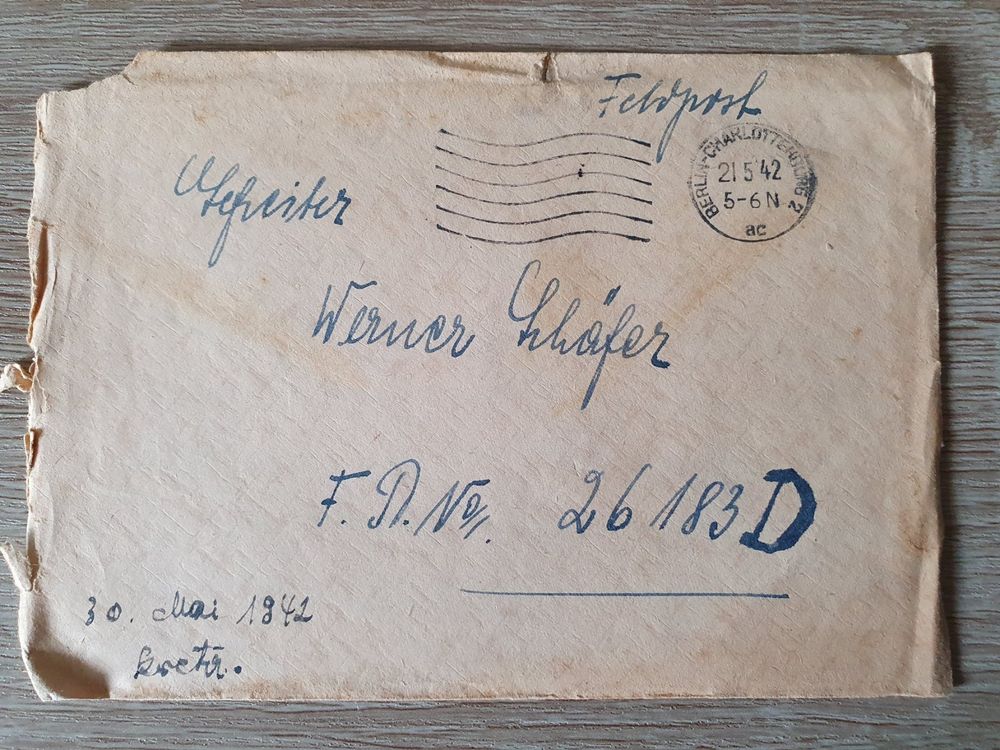 Feldpost
BERLIN-CHARLOTTENBURG 2
21 5 42
5-6 N
ac
Gefreiter
Werner Schäfer
F.P.No. 26183 D
30. Mai 1942